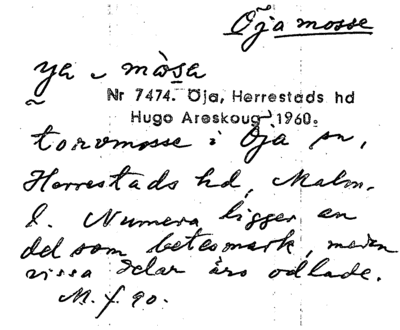 Öja mosse
ya ‿ mòsa
Nr 7474. Öja, Herrestads hd
Hugo Areskoug 1960.
torvmosse i Öja sn,
Herrestads hd, Malm.
l. Numera ligger en
del som betesmark, medan
vissa delar äro odlade.
M. f. 90.